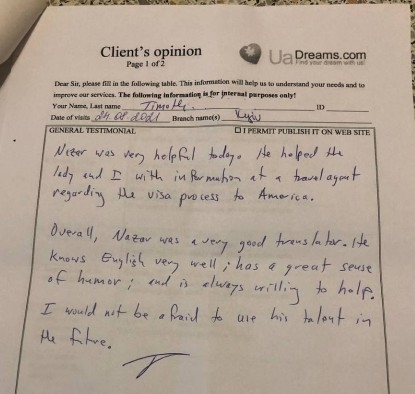 Client's opinion
Page 1 of 2
UaDreams.com
Find your dream with us!
Dear Sir, please fill in the following table. This information will help us to understand your needs and to
improve our services. The following information is for internal purposes only!
Your Name, Last name Timothy ID
Date of visits 24.08.2021 Branch name(s) Kyiv
GENERAL TESTIMONIAL I PERMIT PUBLISH IT ON WEB SITE
Nazar was very helpful today. He helped the
lady and I with information at a travel agent
regarding the visa process to America.
Overall, Nazar was a very good translator. He
knows English very well; has a great sense
of humor; and is always willing to help.
I would not be afraid to use his talent in
the future.